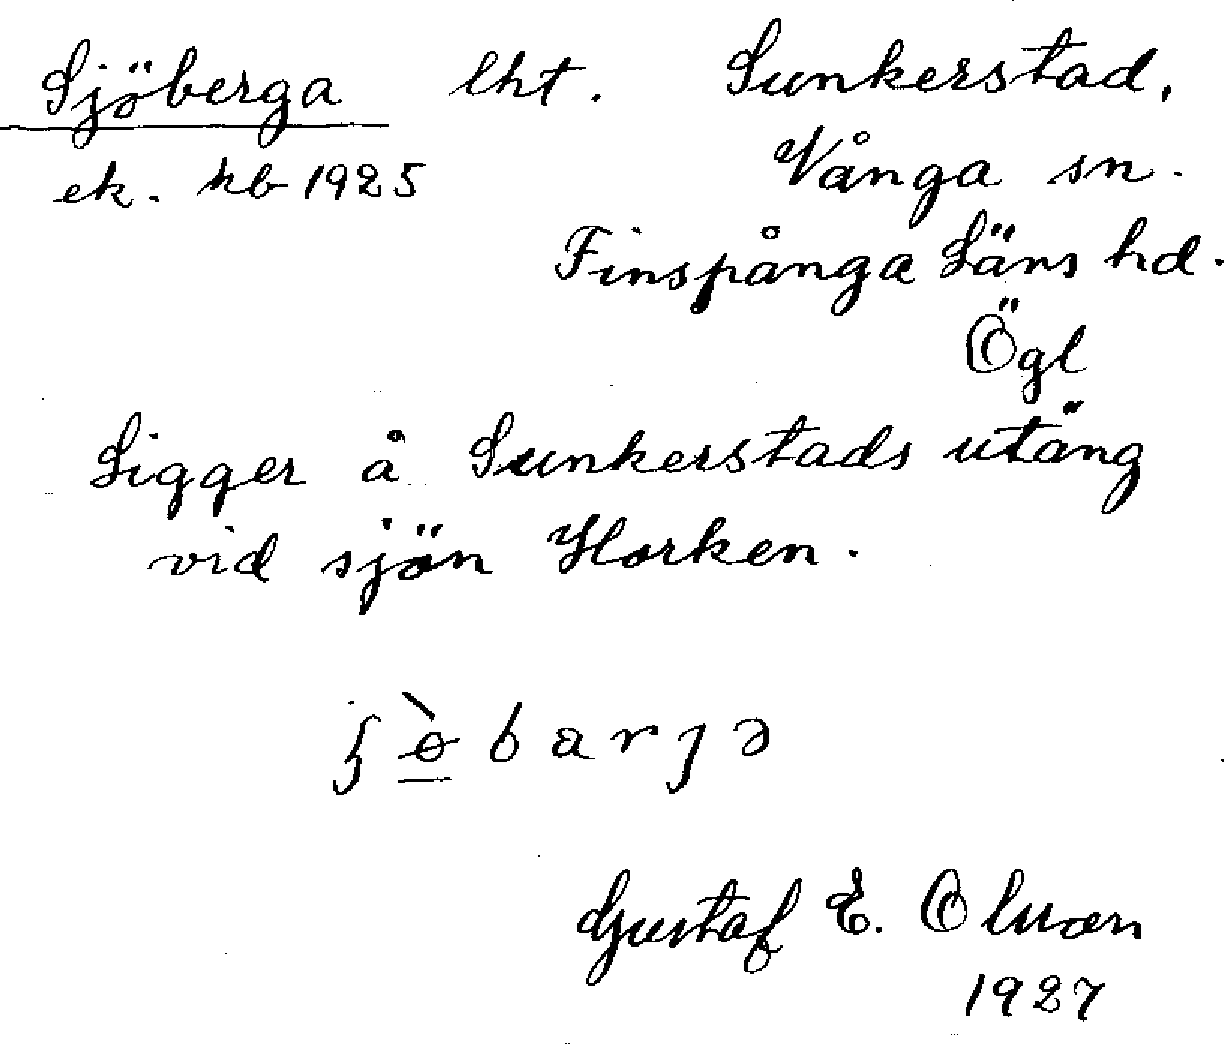 Sjöberga lht. Sunkerstad,
ek. hb 1925 Vånga sn.
Finspånga Läns hd.
Ögl
Ligger å Sunkerstads utäng
vid sjön Horken.
Gustaf E. Olson
1927